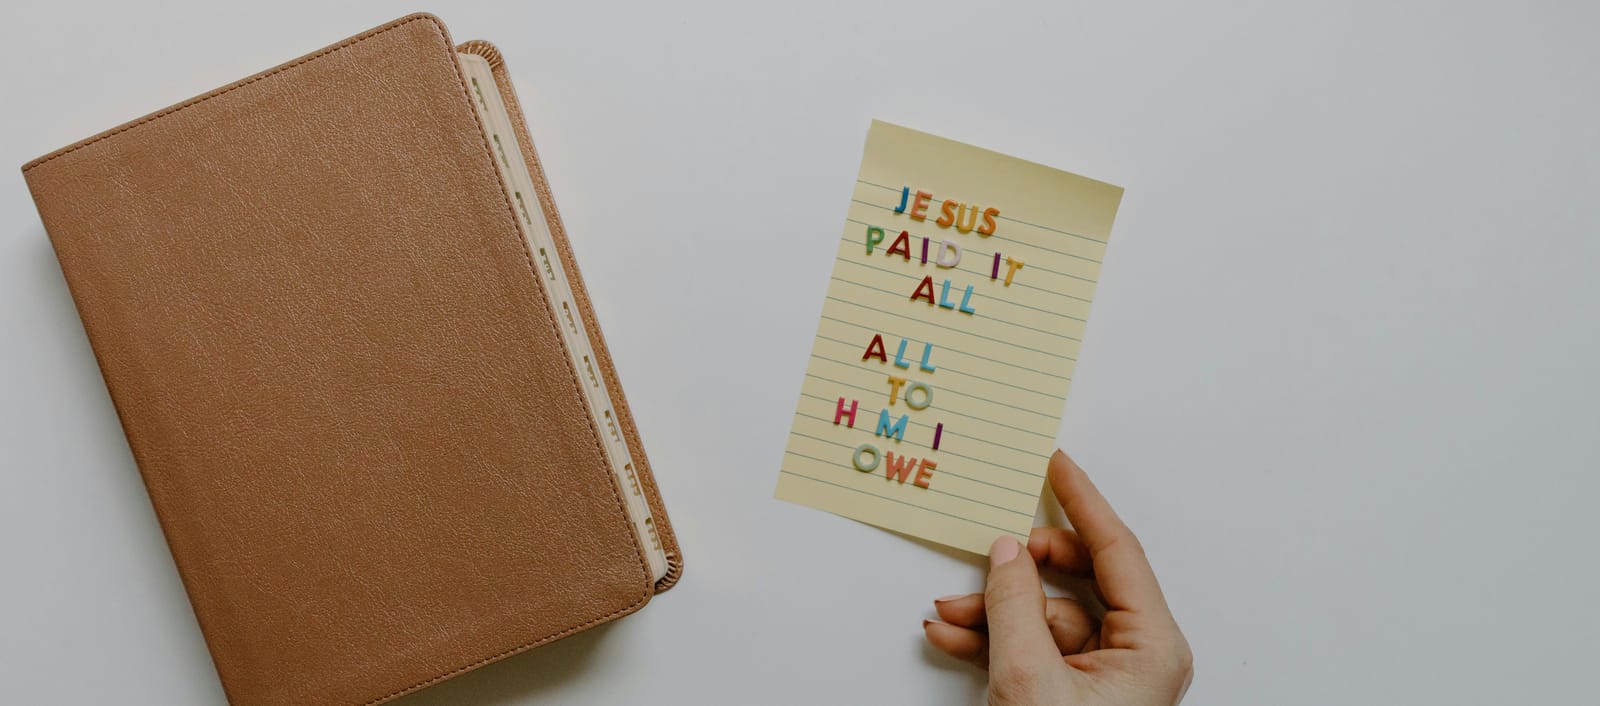 JESUS
PAID IT
ALL
ALL
TO
H M I
OWE